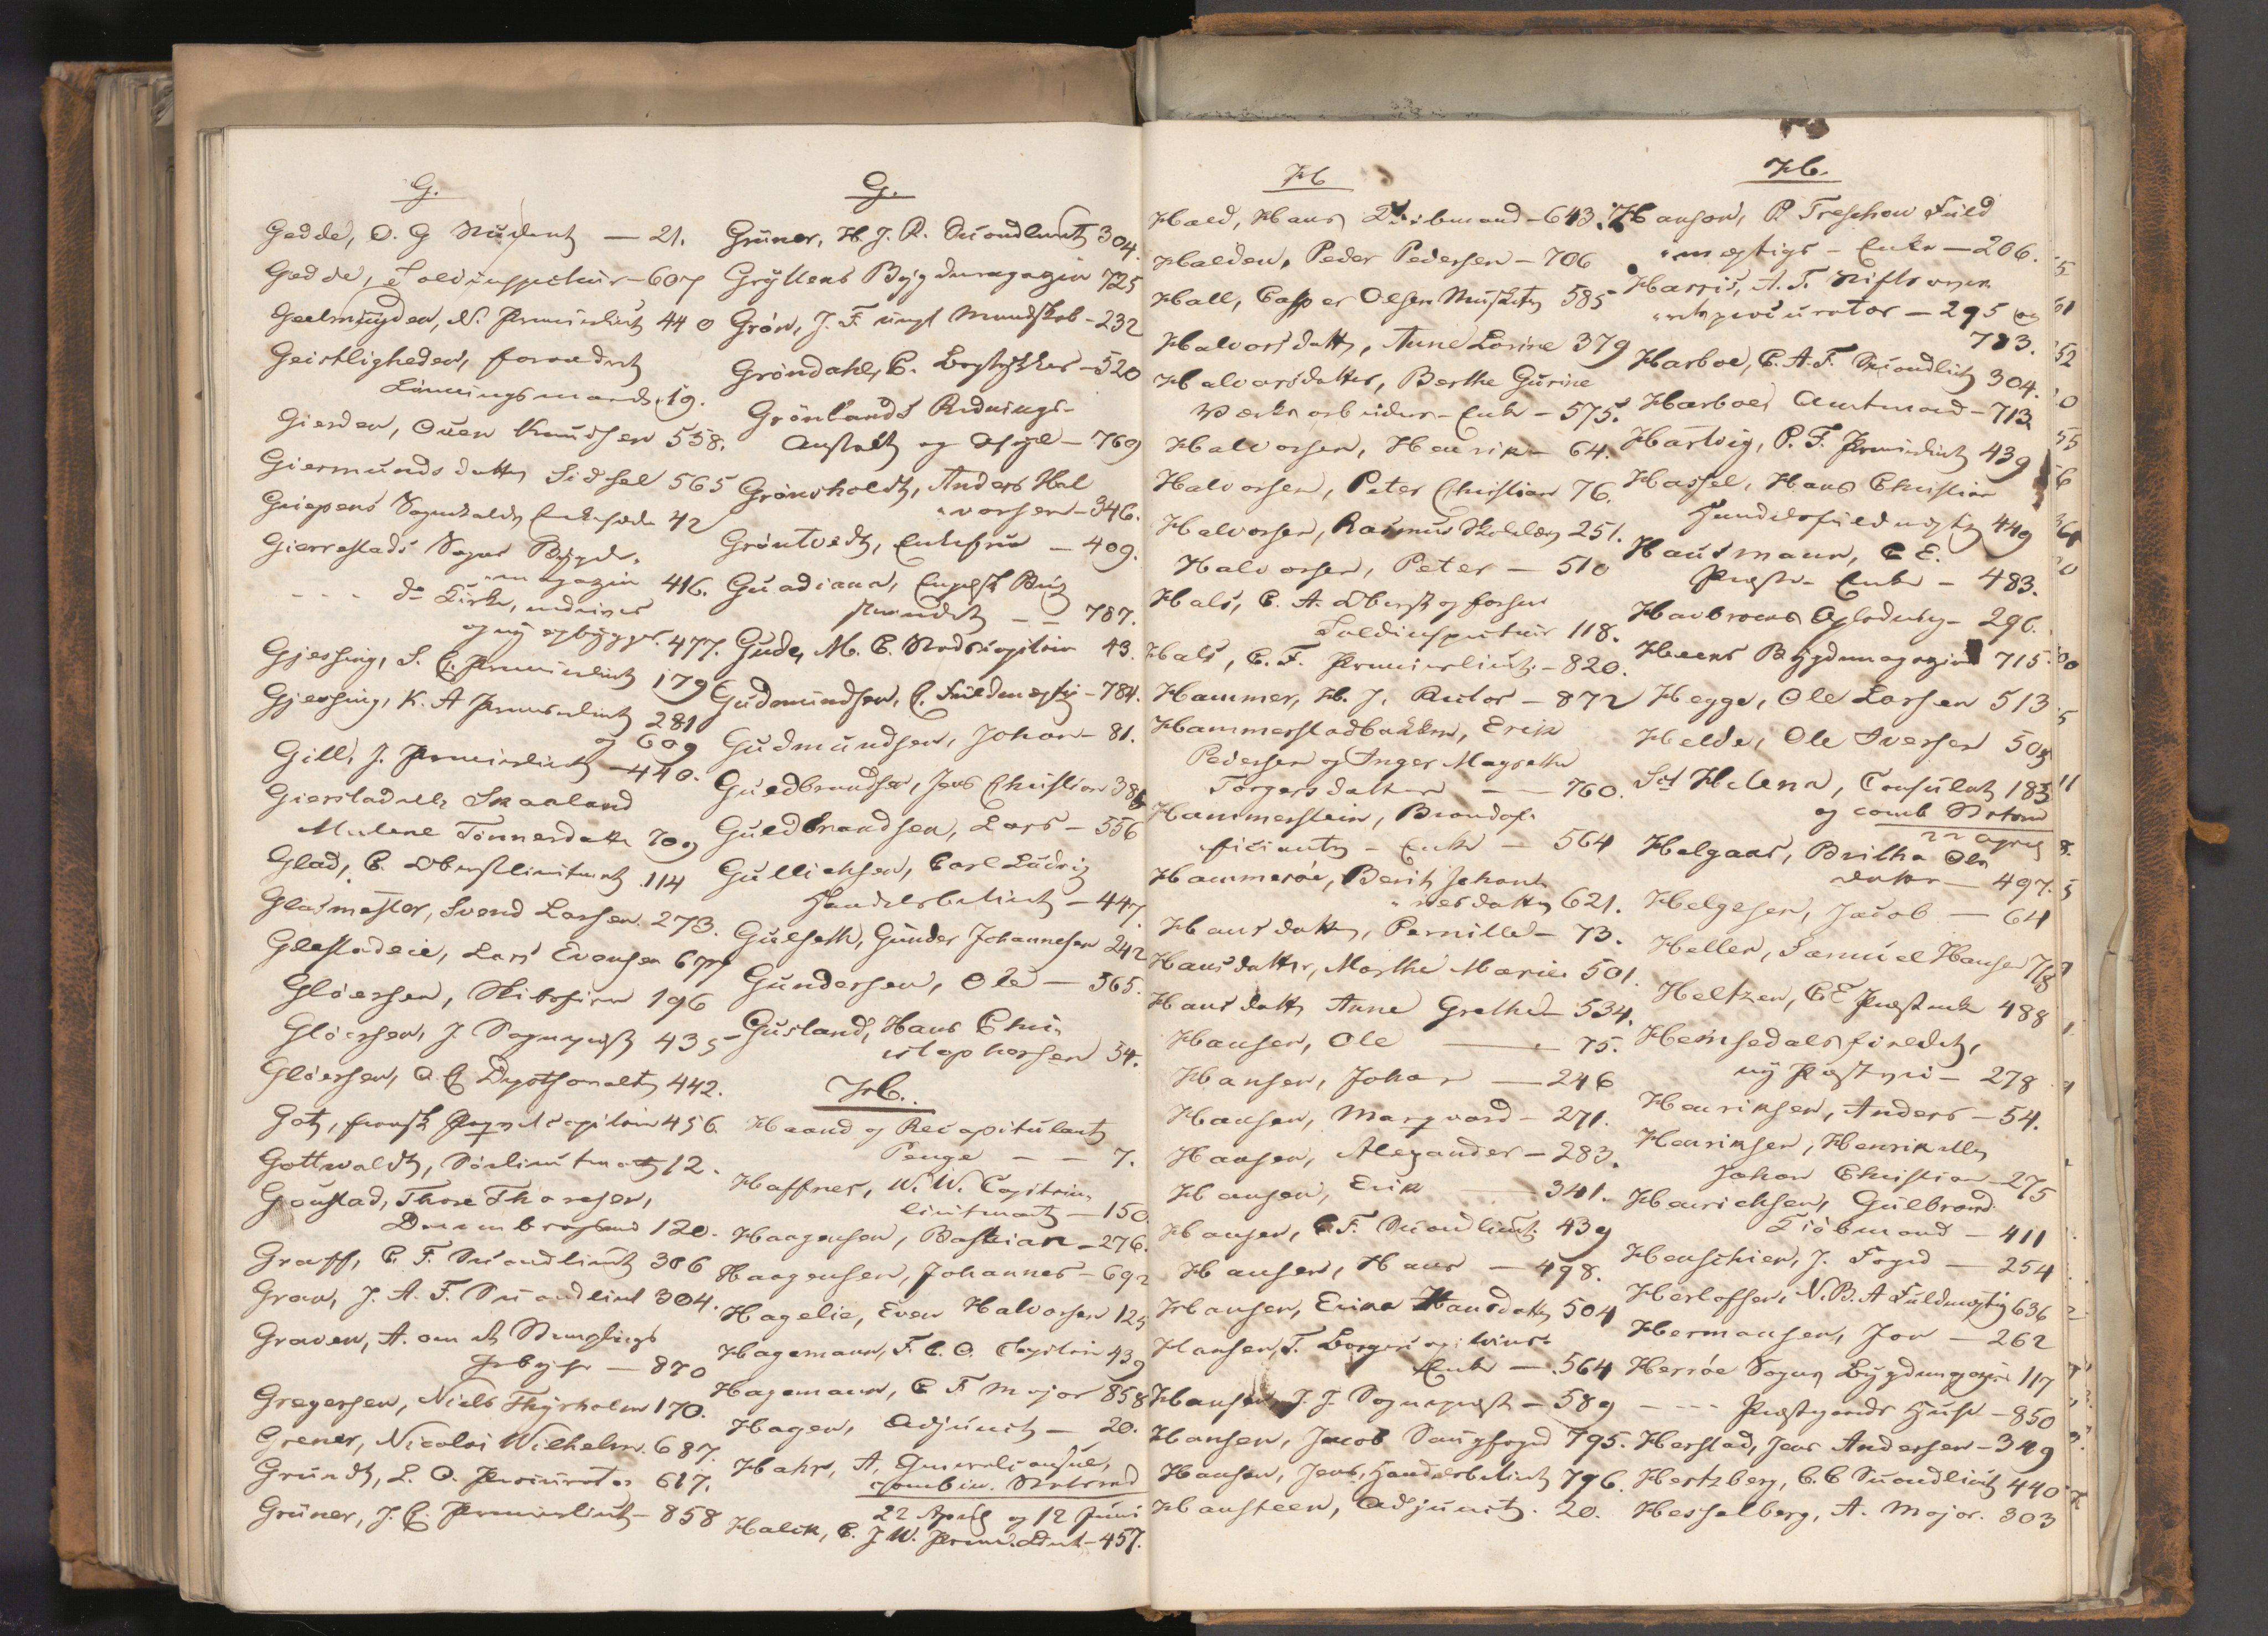 G.
Gedde, O. G Student — 21.
Gedde, Toldinspecteur - 607
Geelmuyden, N. Premierlieut 440
Geistligheden, forandret
Lønningsmaade 19.
Gierden, Ouen Knudsen 558.
Giermundsdatter Sidsel 565
Griepens Sognekalds Enkesæde 42
Gierrestads Sogns Bygde-
magazin 416.
- - - do Kirke, nedrives
og ny opbygges. 477.
Gjessing, S. C. Premierlieut 179
Gjessing, K. A Premierlieut 281
og 609
Gill, J. Premierlieut - 440.
Gierstad eller Skaaland
Malene Tønnesdatter 709
Glad, C. Oberstlieutenant 114
Glasmester, Svend Larsen. 273.
Glestadeie, Lars Evensen 677
Gløersen, Skibsfører 196
Gløersen, J. Sognepræst 435
Gløersen, O. C 442.
Got, fransk Capitain 456.
Gottwaldt, Søelieutenant 12.
Goustad, Thore Thoresen,
Dannebrogsmand 120.
Graff, C. F. Secondlieut 306
Gran, J. A. F. Secondlieut 304.
Graven, A. om et Stemplings
Gebyhr — 870
Gregersen, Niels Thyrholm 170.
Grener, Nicolai Wilhelm. 687.
Grundt, L. O. Procurator 617.
Grüner, J. C. Premierlieut - 858
G.
Grüner, H. J. R. Secondlieut 304.
Gryttens Bygdemagazin 725
Grøn, J. F. Mandskab - 232
Grøndahl, C. Bogtrykker - 520
Grønlands Rednings-
Anstalt og Asyl - 769
Grønsholdt, Anders Hal
vorsen - 346.
Grøntvedt, Enkefrue — 409.
Guadiana, Engelsk Brig
strandet — — 787.
Gude, M. C. Stadscapitain 43.
Gudmundsen, C. Fuldmægtig - 784.
Gudmundsen, Johan - 81.
Guldbrandsen, Jens Christian 386
Guldbrandsen, Lars - 556
Gullichsen, Carl Ludvig
Handelsbetient - 447.
Gulseth, Gunder Johannesen 242
Gundersen, Ole — 565.
Gusland, Hans Chri-
stophersen 54.
H.
Haand og Recapitulant
Penge — — 7.
Haffner, W. W. Capitain
lieutenant — 150.
Haagensen, Bastian - 276.
Haagensen, Johannes - 692
Hagelie, Even Halvorsen 125
Hagemann, F. C. O. Capitain 439
Hagemann, C F Major 858
Hagen, Adjunct — 20.
Hahr, A, Generalconsul,
combin. Statsraad
22 April og 12 Juni
Halck, C. J. W. Prem. Lieut - 457.
H
Hald, Hans Tiibmand - 643.
Halden, Peder Pedersen - 706
Hall, Casper Olsen Musketer 585
Halvorsdatter, Anne Lovine 379
Halvorsdatter, Berthe Gurine
Værksarbeider - Enke - 575.
Halvorsen, Henrik - 64.
Halvorsen, Peter Christian 76.
Halvorsen, Rasmus Skolelærer 251.
Halvorsen, Peter — 510
Hals, C. A. Oberst og forhen
Toldinspecteur 118.
Hals, C. F. Premierlieut. - 820.
Hammer, H. J. Rector - 872
Hammerstadbakken, Erik
Pedersen og Inger Magrethe
Torgersdatter — — 760.
Hammerstein, Brandof-
ficiant - Enke — 564
Hammerøe, Berit Johan-
nesdatter 621.
Hansdatter, Pernille - 73.
Hansdatter, Marthe Marie 501.
Hansdatter Anne Grethe - 534.
Hansen, Ole ——— 75.
Hansen, Johan — 246
Hansen, Marqvard - 271.
Hansen, Alexander - 283.
Hansen, Erik ——— 341.
Hansen, C. F. Secondlieut 439
Hansen, Hans — 498.
Hansen, Erika Hansdatter 504
Hansen, F. Borger
Enke — 564
Hansen, J. J. Sognepræst - 589
Hansen, Jacob Saugfoged 795.
Hansen, Jens, Handelsbetient 796.
Hansteen, Adjunct. 20.
H.
Hanson, P. Treschow Fuld
mægtigs - Enke — 206.
Harris, A. T. Stiftsover-
retsprocurator — 295 og
783.
Harboe, C. A. F. Secondlieut 304.
Harboe, Amtmand - 713
Hartvig, P. F. Premierlieut 439
Hassel, Hans Christian
Handelsfuldmægtig 449
Hausmann, C E.
Præste - Enke - 483.
Havbroens Opløduing - 296.
Heens Bygdemagazin 715.
Hegge, Ole Larsen 513
Helde, Ole Iversen 505
Sct Helena, Consulat 183
og comb Statsraad
22 April
Helgaas, Britha Ols
datter — 497.
Helgesen, Jacob — 64
Heller, Samuel Hansen 718
Heltzen, C C Præstenke 488
Hemsedalsfieldet,
ny Postvei - 278
Henriksen, Anders - 54.
Henriksen, Henrik eller
Johan Christian - 275
Henrichsen, Gulbrand
Tiibmand - 411
Henschien, J. Foged — 254
Herlofsen, N. B. A Fuldmægtig 636
Hermansen, Jon — 262
Herrøe Sogns Bygdemagazin 117
- - - Præstgaards Huse - 850
Herstad, Jens Andersen - 349
Hertzberg, C. C Secondlieut 440
Hesselberg, A. Major. 303